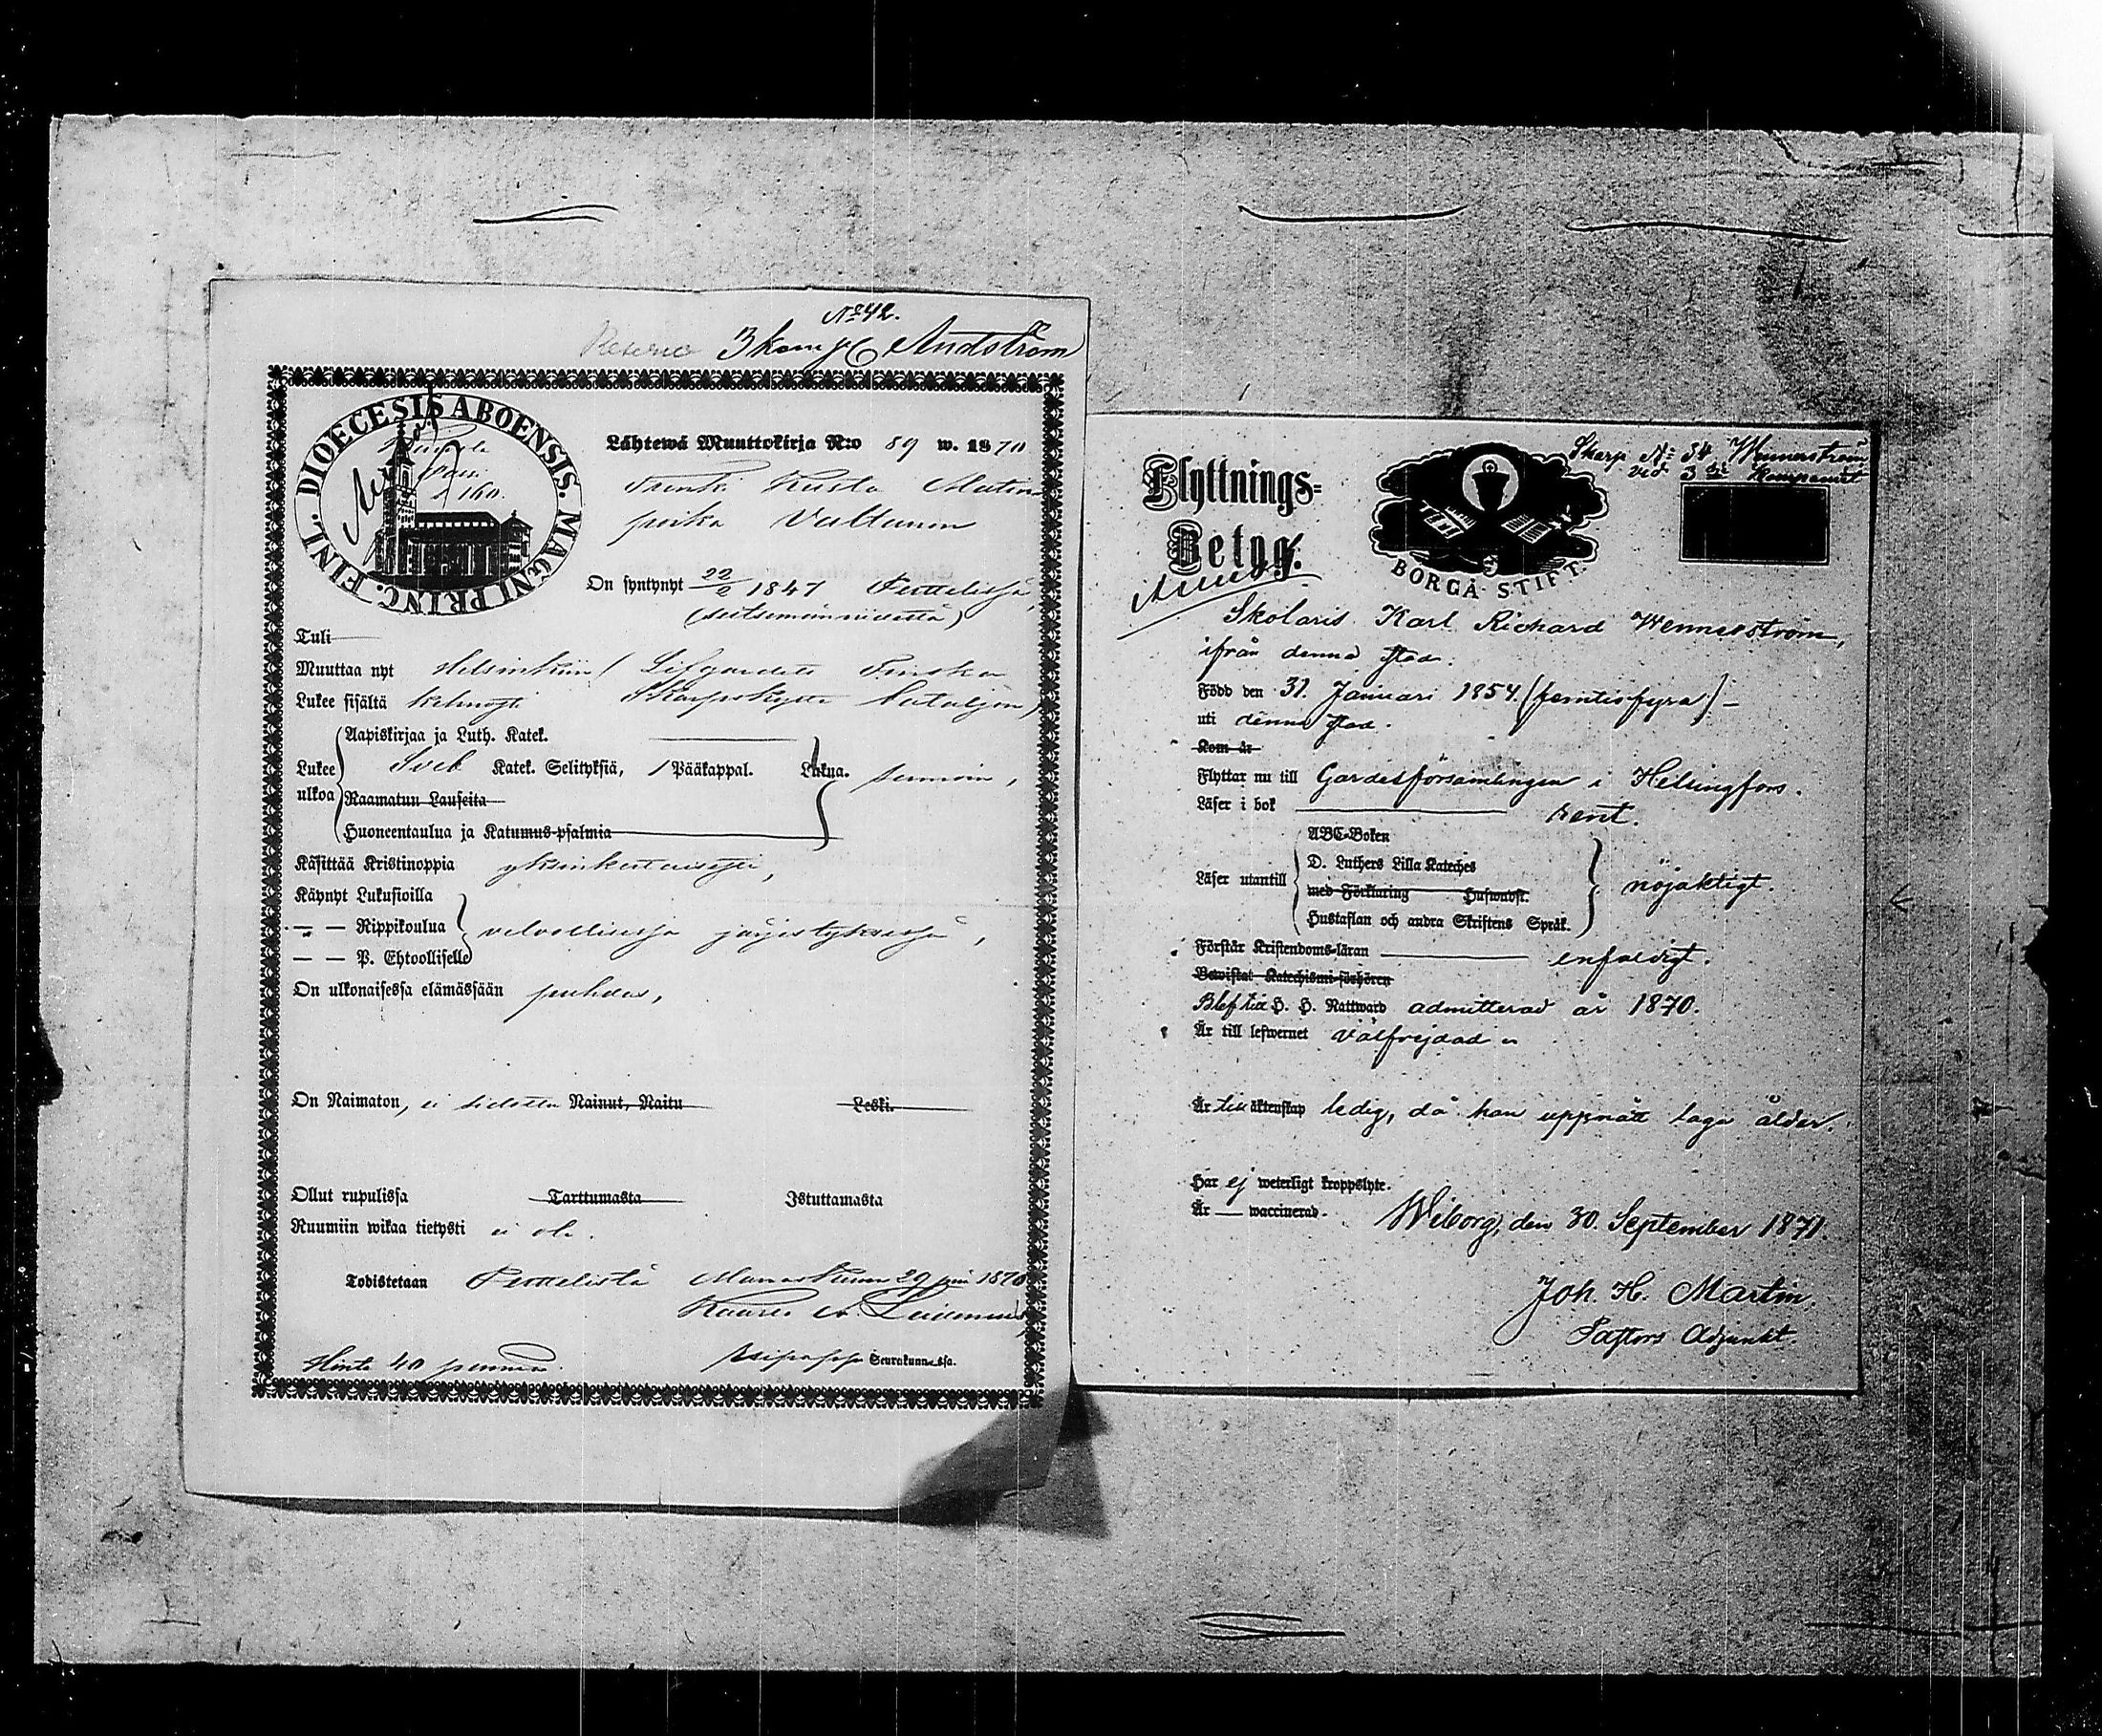 No 42.
3 komp. Andström
DIOECESIS ABOENSIS. MAGNI PRINC. FINL.
160.
Lähtewä Muuttokirja N:o 89 w. 1870
Trenki Kusta Matin
poika Valtanen
On syntynyt 22/2 1847 Perttelissä
(seitsemän viidettä)
Tuli
Muuttaa nyt Helsinkiin (Lifgardets Finska
Lukee sisältä kelvogt. Skarpskytte bataljon)
Aapiskirjaa ja Luth. Katek.
Lukee ulkoa Sveb Katek. Selityksiä, 1 Pääkappal. Lukua.
Raamatun Lauseita
Huoneentaulua ja Katumus-psalmia
Käsittää Kristinoppia yksinkertaisesti,
Käynyt Lukusioilla
— — Rippikoulua velvollisessa järjestyksessä,
— — P. Ehtoolliselle
On ulkonaisessa elämässään puhdas,
On Naimaton, ei tietty Nainut, Naitu Leski.
Ollut rupulissa Tarttumasta Istuttamasta
Ruumiin wikaa tietysti ei ole.
Todistetaan Perttelistä Marraskuun 29 p:nä 1870
Hinta 40 penniä. Seurakunnassa.
Skarp. No 54. Wennerström
vid 3 die kompaniet
Flyttnings=
Betyg.
BORGÅ STIFT.
Skolaris Karl Richard Wennerström,
ifrån denna stad.
Född den 31. Januari 1854. (femtiofyra) –
uti denna stad.
Kom år
Flyttar nu till Gardesförsamlingen i Helsingfors.
Läser i bok rent.
ABC-Boken
D. Luthers Lilla Kateches
Läser utantill med Förklaring Huswudst. nöjaktigt.
Hustaflan och andra Skriftens Språk.
Förstår Kristendoms-läran enfaldigt.
Bewistat Katechismi-förhören
Blef till H. H. Nattward admitterad år 1870.
Är till lefwernet välfrejdad
Är till äktenskap ledig, då han uppnått laga ålder.
Har ej weterligt kroppslyte.
Är — waccinerad.
Wiborg, den 30. September 1871.
Joh. H. Martin.
Pastors Adjunkt.